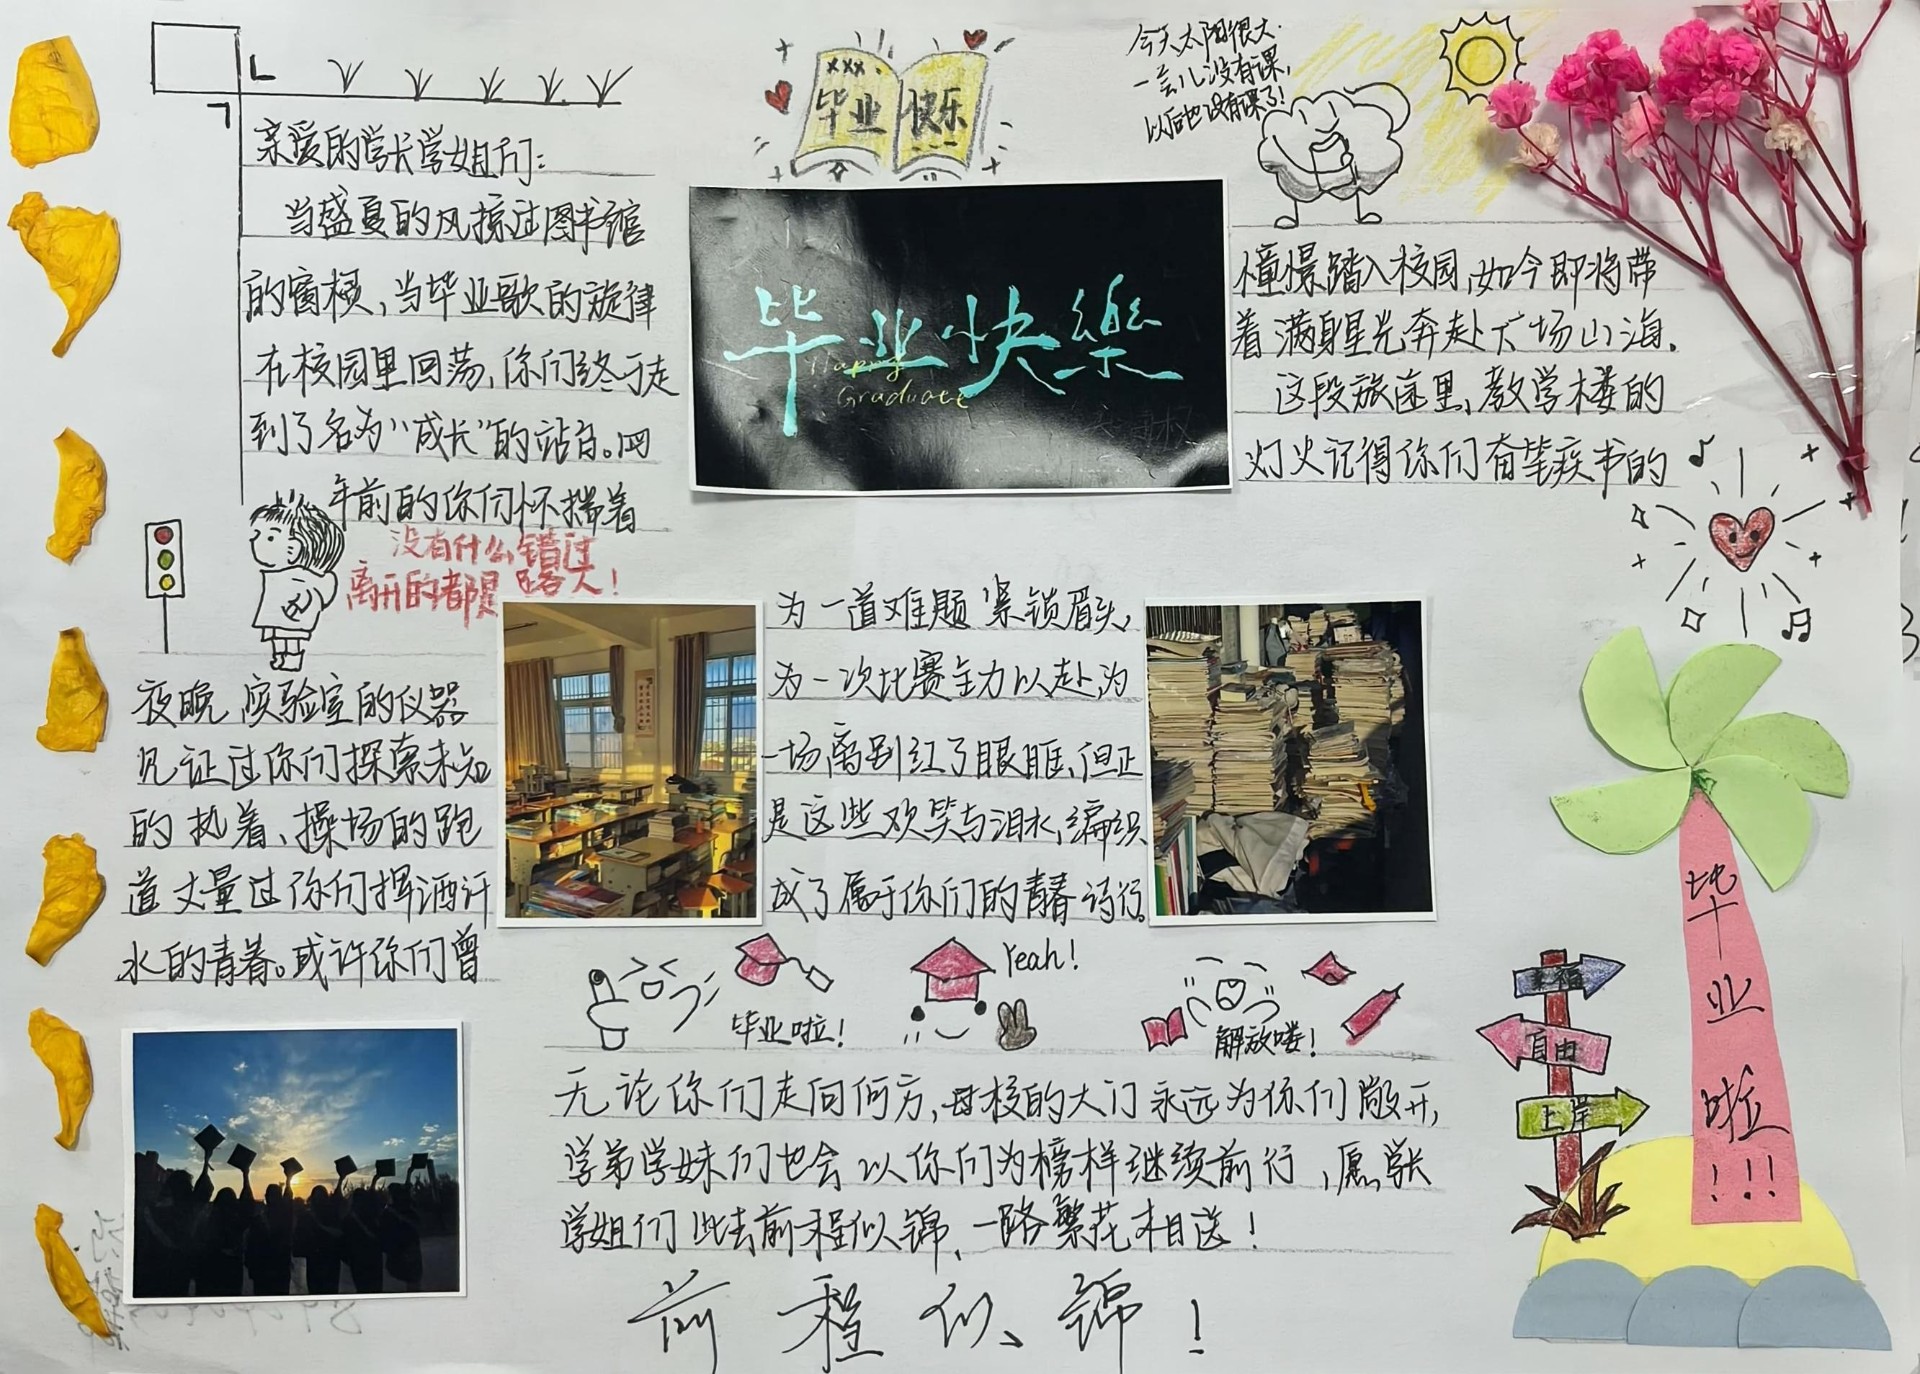 xxx.
毕业快乐
今天太阳很大.
一会儿没有课,
以后也没有课了!
亲爱的学长学姐们:
当盛夏的风掠过图书馆
的窗棂,当毕业歌的旋律
在校园里回荡,你们终于走
到了名为“成长”的站台。四
年前的你们怀揣着
毕业快樂
Happy
Graduate
憧憬踏入校园,如今即将带
着满身星光奔赴下一场山海.
这段旅途里,教学楼的
灯火记得你们奋笔疾书的
没有什么错过
离开的都是路人!
夜晚,实验室的仪器
见证过你们探索未知
的执着、操场的跑
道丈量过你们挥洒汗
水的青春。或许你们曾
为一道难题紧锁眉头,
为一次比赛全力以赴为
一场离别红了眼眶,但正
是这些欢笑与泪水,编织
成了属于你们的青春诗行。
毕业啦!
Yeah!
解放喽!
无论你们走向何方,母校的大门永远为你们敞开,
学弟学妹们也会以你们为榜样继续前行,愿学长
学姐们此去前程似锦、一路繁花相送!
前程似锦!
幸福
自由
上岸
毕业啦!!!